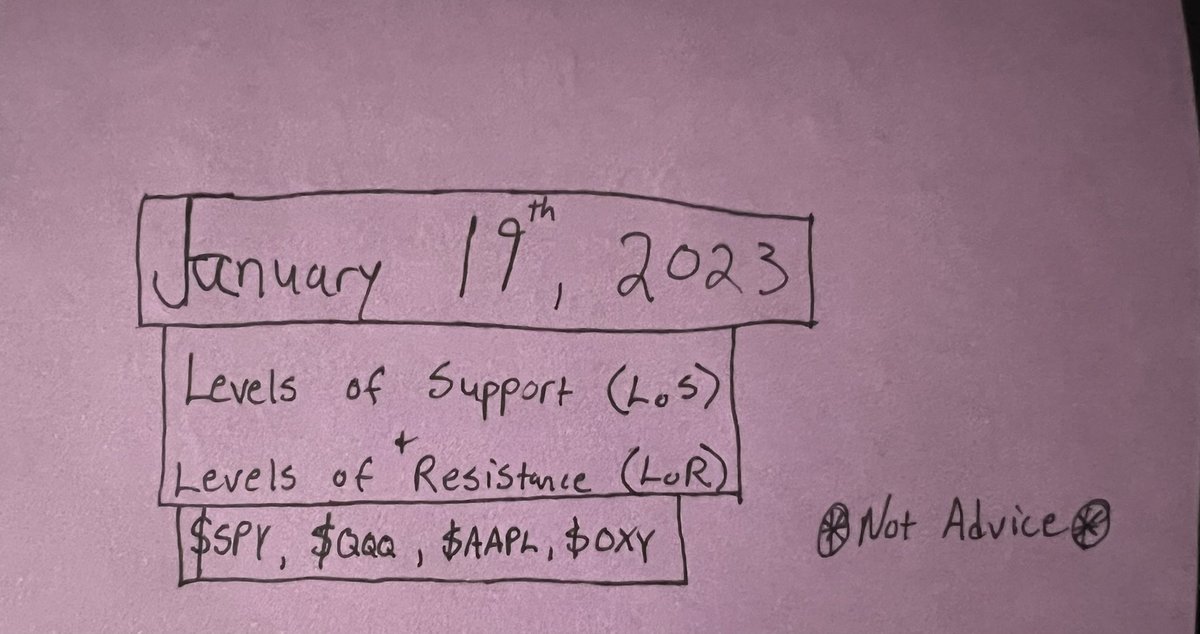 January 19th, 2023
Levels of Support (LoS)
+
Levels of Resistance (LoR)
$SPY, $QQQ, $AAPL, $OXY
⊛Not Advice⊛